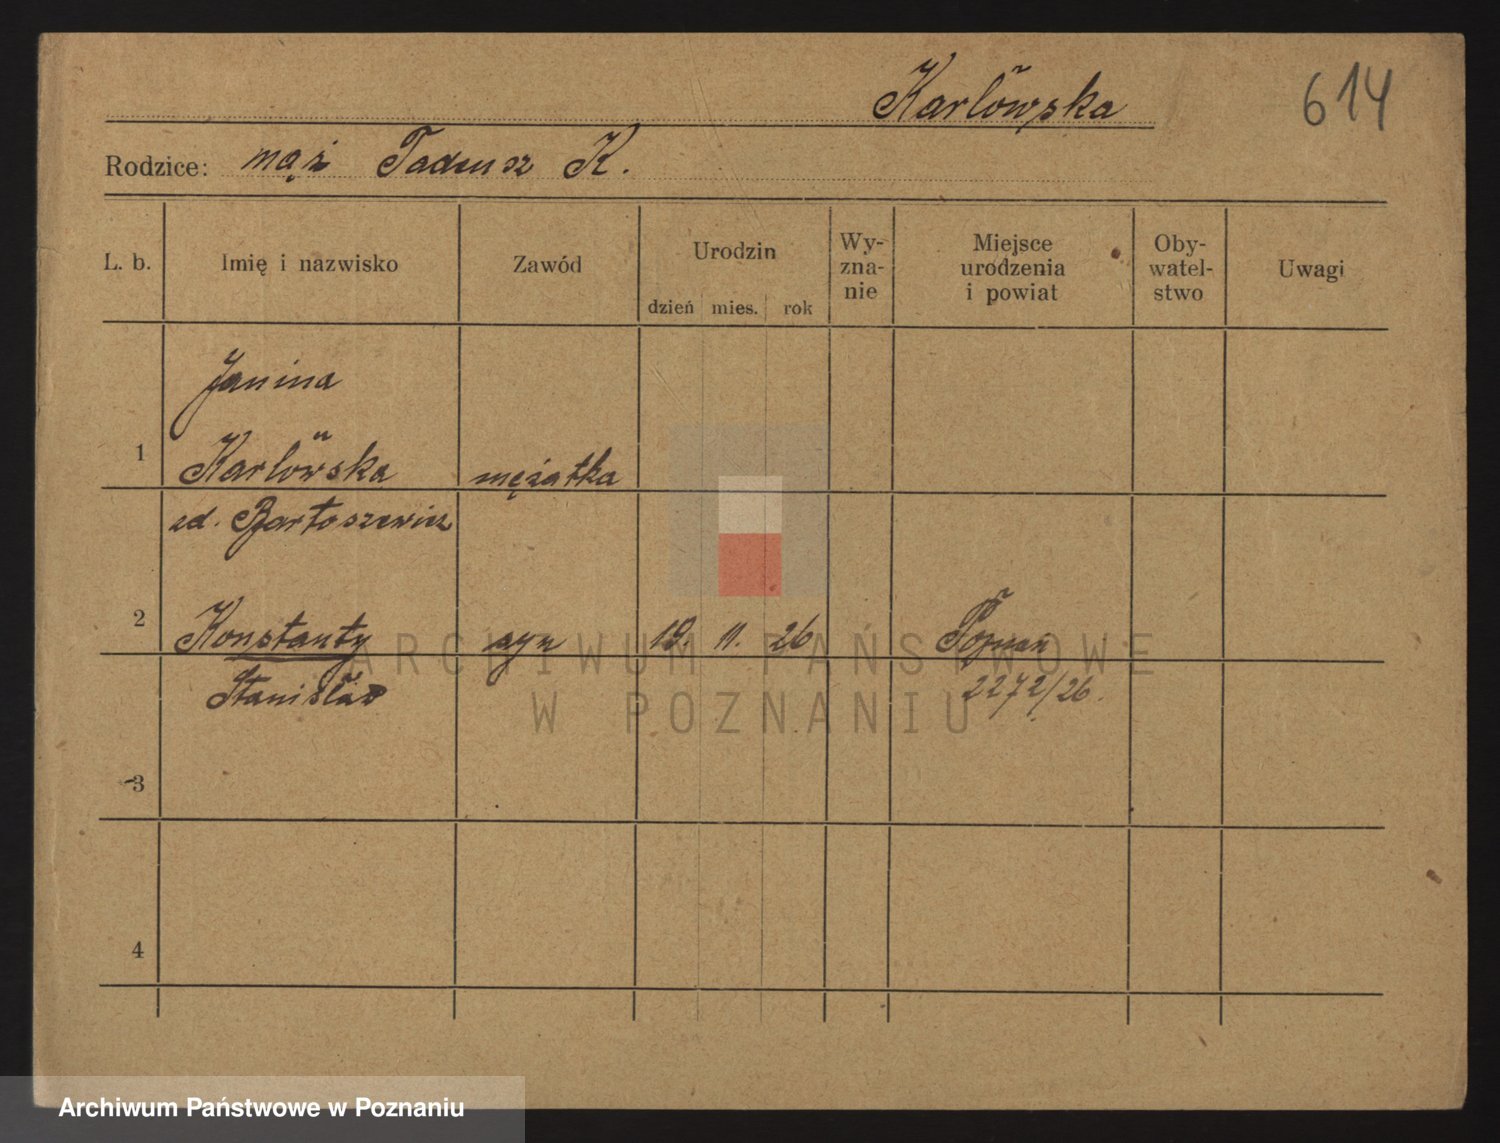 Karłowska 614
Rodzice: mąż Tadeusz K.
L. b. Imię i nazwisko Zawód Urodzin dzień mies. rok Wy-zna-nie Miejsce urodzenia i powiat Oby-watel-stwo Uwagi
Janina
1 Karłowska mężatka
zd. Bartoszewicz
2 Konstanty syn 19. 11. 26 Poznań
Stanisław 2272/26.
3
4
ARCHIWUM PAŃSTWOWE
W POZNANIU
Archiwum Państwowe w Poznaniu